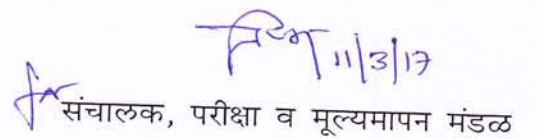 11/3/17
for संचालक, परीक्षा व मूल्यमापन मंडळ